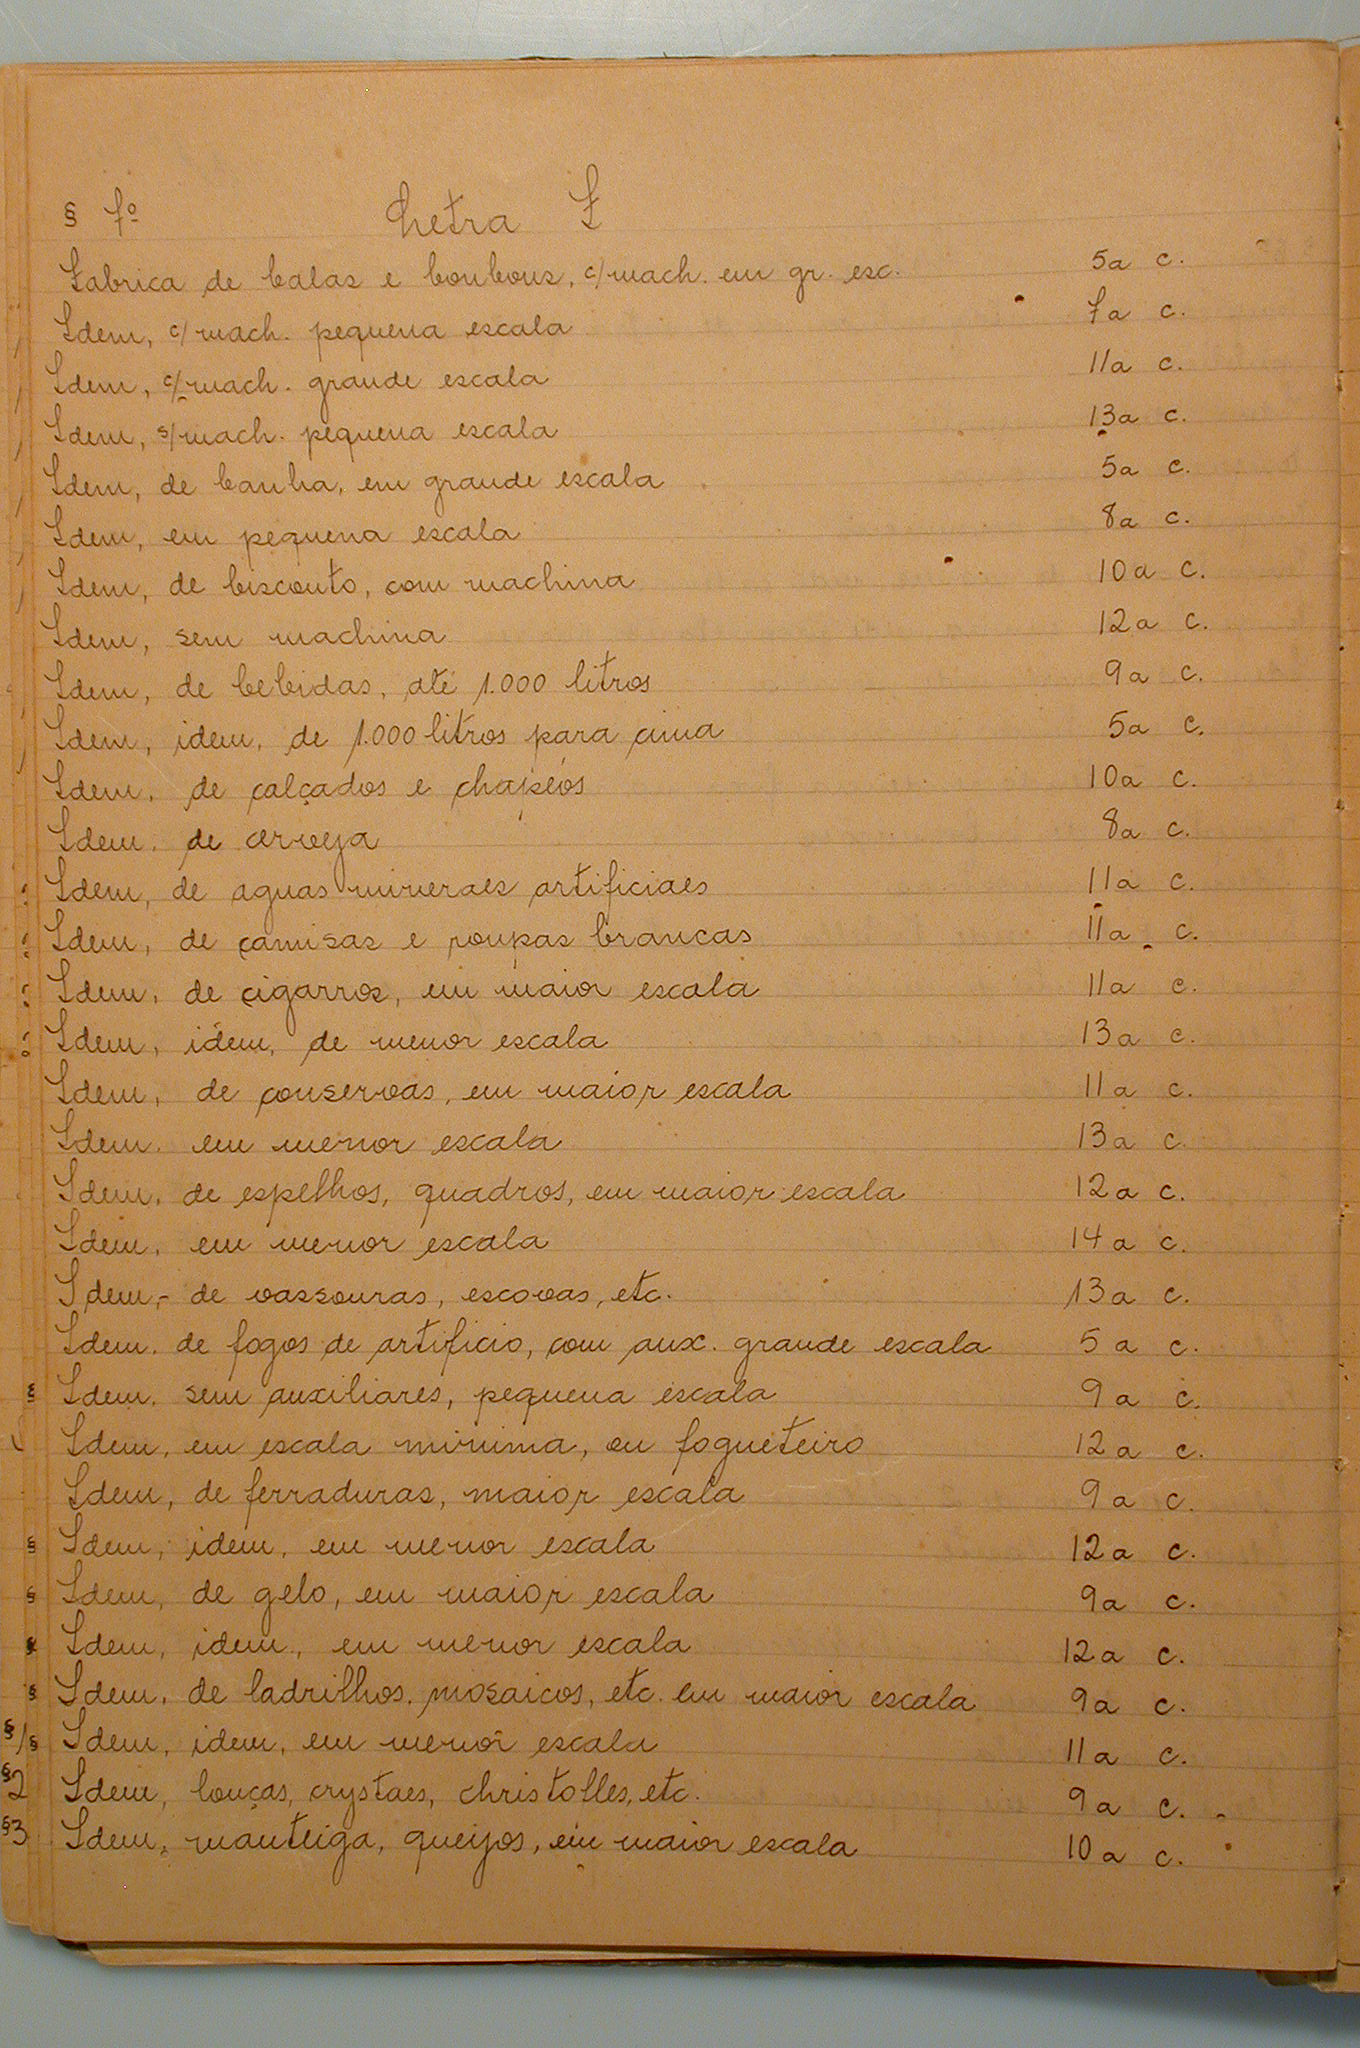 § 7º Letra F
Fabrica de balas e bonbons, c/mach. em gr. esc. 5a c.
Idem, c/mach. pequena escala 7a c.
Idem, c/mach. grande escala 11a c.
Idem, s/mach. pequena escala 13a c.
Idem, de banha, em grande escala 5a c.
Idem, em pequena escala 8a c.
Idem, de biscouto, com machina 10a c.
Idem, sem machina 12a c.
Idem, de bebidas, até 1.000 litros 9a c.
Idem, idem, de 1.000 litros para cima 5a c.
Idem, de calçados e chapéos 10a c.
Idem, de cerveja 8a c.
Idem, de aguas mineraes artificiaes 11a c.
Idem, de camisas e roupas brancas 11a c.
Idem, de cigarros, em maior escala 11a c.
Idem, idem, de menor escala 13a c.
Idem, de conservas, em maior escala 11a c.
Idem, em menor escala 13a c.
Idem, de espelhos, quadros, em maior escala 12a c.
Idem, em menor escala 14a c.
Idem,- de vassouras, escovas, etc. 13a c.
Idem, de fogos de artificio, com aux. grande escala 5a c.
§ Idem, sem auxiliares, pequena escala 9a c.
Idem, em escala minima, ou fogueteiro 12a c.
Idem, de ferraduras, maior escala 9a c.
§ Idem, idem, em menor escala 12a c.
§ Idem, de gelo, em maior escala 9a c.
Idem, idem, em menor escala 12a c.
§ Idem, de ladrilhos, mosaicos, etc. em maior escala 9a c.
§1§ Idem, idem, em menor escala 11a c.
§2 Idem, louças, crystaes, christofles, etc. 9a c.
§3 Idem, manteiga, queijos, em maior escala 10a c.